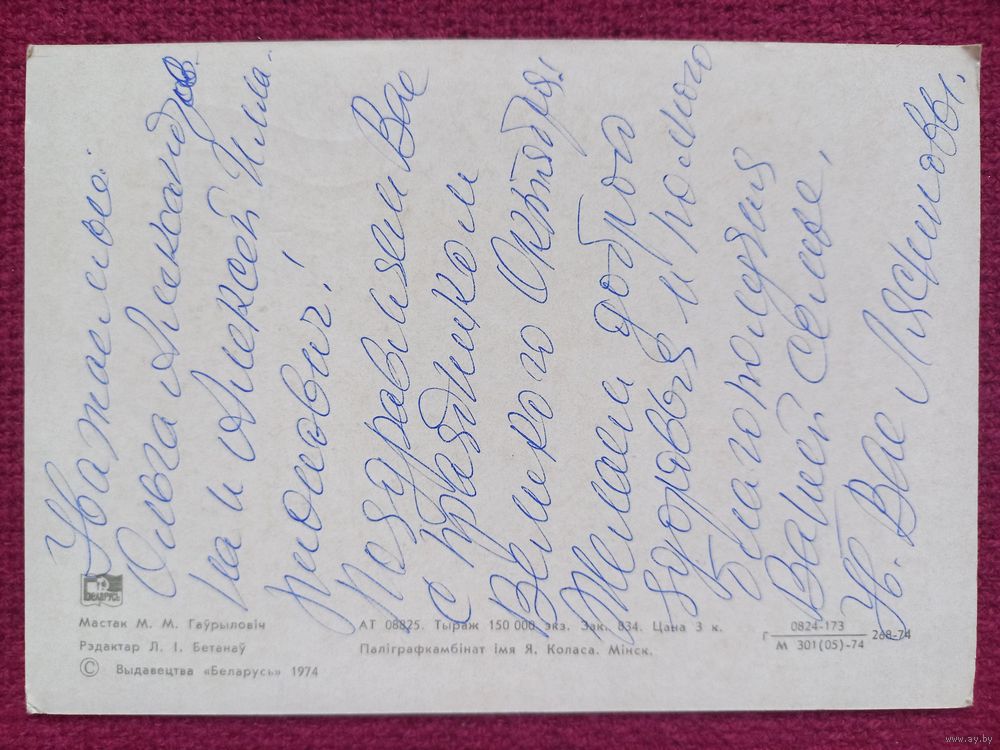 Уважаемые
Ольга Александров-
на и Алексей Фили-
монович!
Поздравляем Вас
с праздником
Великого Октября!
Желаем доброго
здоровья и полного
благополучия
Вашей семье.
Ув. Вас Лясниковы.
БЕЛАРУСЬ
Мастак М. М. Гаўрыловіч
Рэдактар Л. І. Бетанаў
© Выдавецтва «Беларусь» 1974
АТ 08825. Тыраж 150 000 экз. Зак. 834. Цана 3 к.
Паліграфкамбінат імя Я. Коласа. Мінск.
Г 0824-173 / М 301(05)-74 268-74
www.ay.by